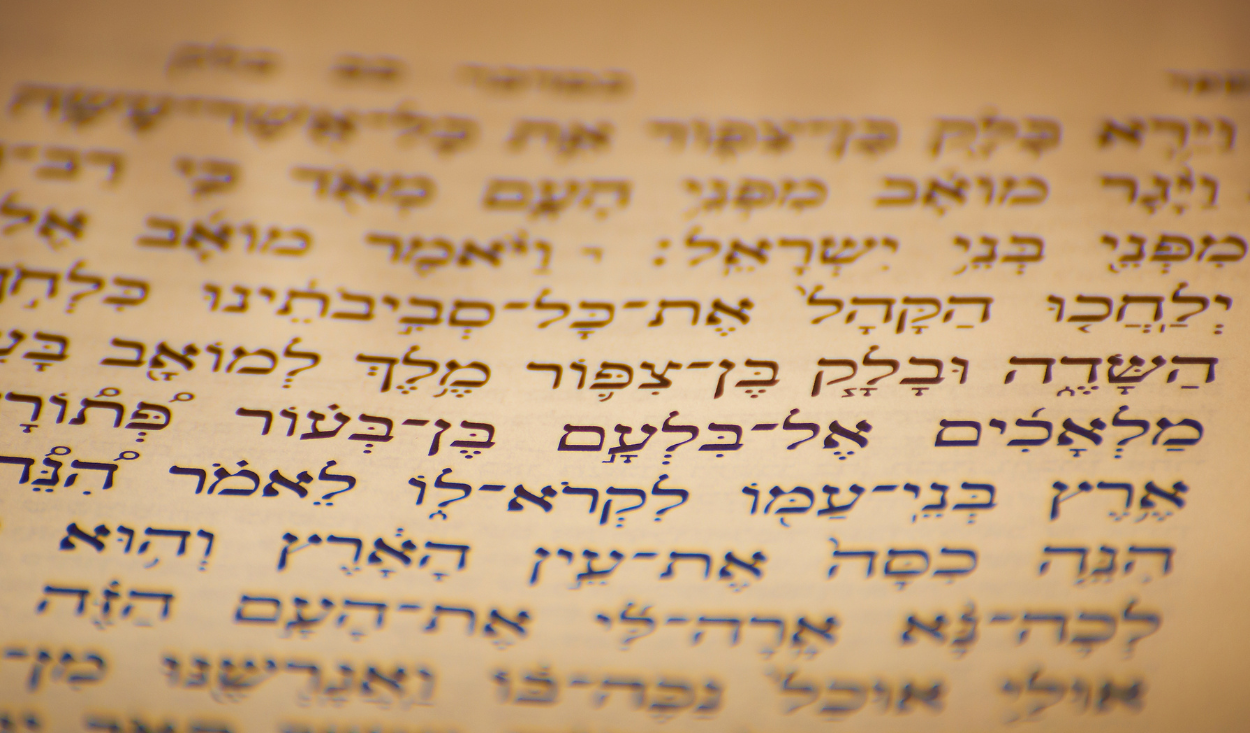 וַיַּרְא בָּלָק בֶּן־צִפּוֹר אֵת כָּל־אֲשֶׁר־עָשָׂה
וַיָּגָר מוֹאָב מִפְּנֵי הָעָם מְאֹד כִּי רַב־
מִפְּנֵי בְּנֵי יִשְׂרָאֵל׃ וַיֹּאמֶר מוֹאָב אֶל
יְלַחֲכוּ הַקָּהָל אֶת־כָּל־סְבִיבֹתֵינוּ כִּלְחֹ
הַשָּׂדֶה וּבָלָק בֶּן־צִפּוֹר מֶלֶךְ לְמוֹאָב בָּעֵ
מַלְאָכִים אֶל־בִּלְעָם בֶּן־בְּעוֹר פְּתוֹרָ
אֶרֶץ בְּנֵי־עַמּוֹ לִקְרֹא־לוֹ לֵאמֹר הִנֵּה
הִנֵּה כִסָּה אֶת־עֵין הָאָרֶץ וְהוּא
לְכָה־נָּא אָרָה־לִּי אֶת־הָעָם הַזֶּה
אוּלַי אוּכַל נַכֶּה־בּוֹ וַאֲגָרְשֶׁנּוּ מִן־